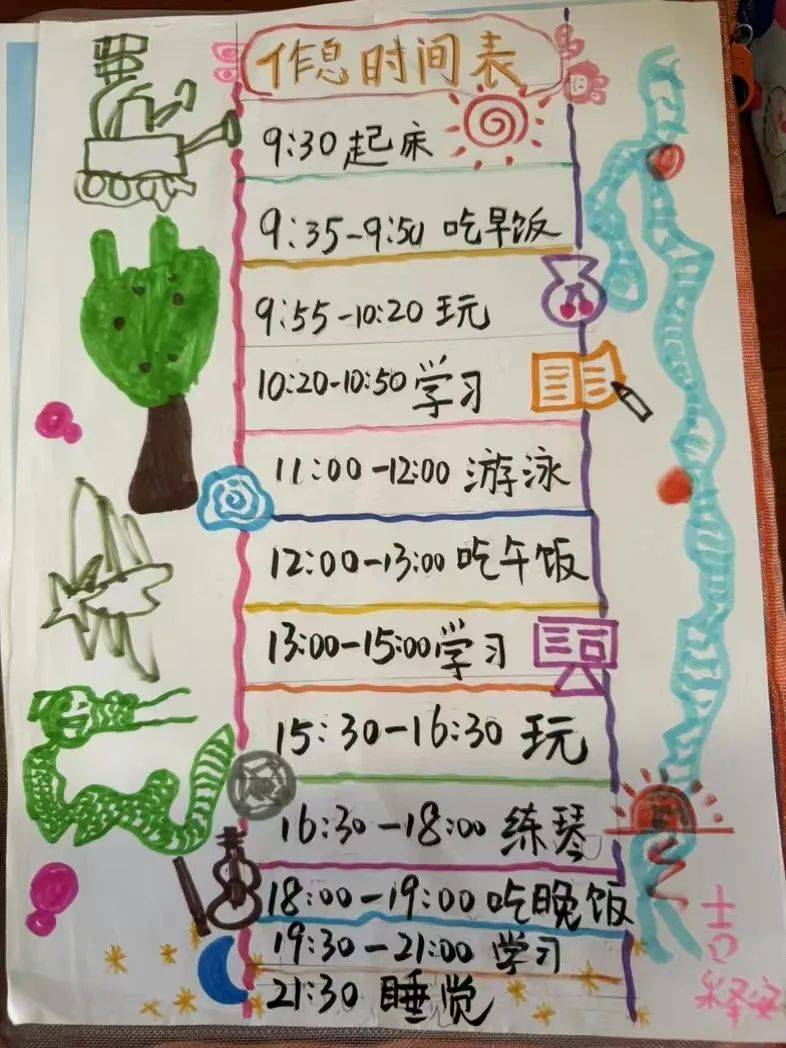 作息时间表
9:30 起床
9:35-9:50 吃早饭
9:55-10:20 玩
10:20-10:50 学习
11:00-12:00 游泳
12:00-13:00 吃午饭
13:00-15:00 学习
15:30-16:30 玩
16:30-18:00 练琴
18:00-19:00 吃晚饭
19:30-21:00 学习
21:30 睡觉
吉